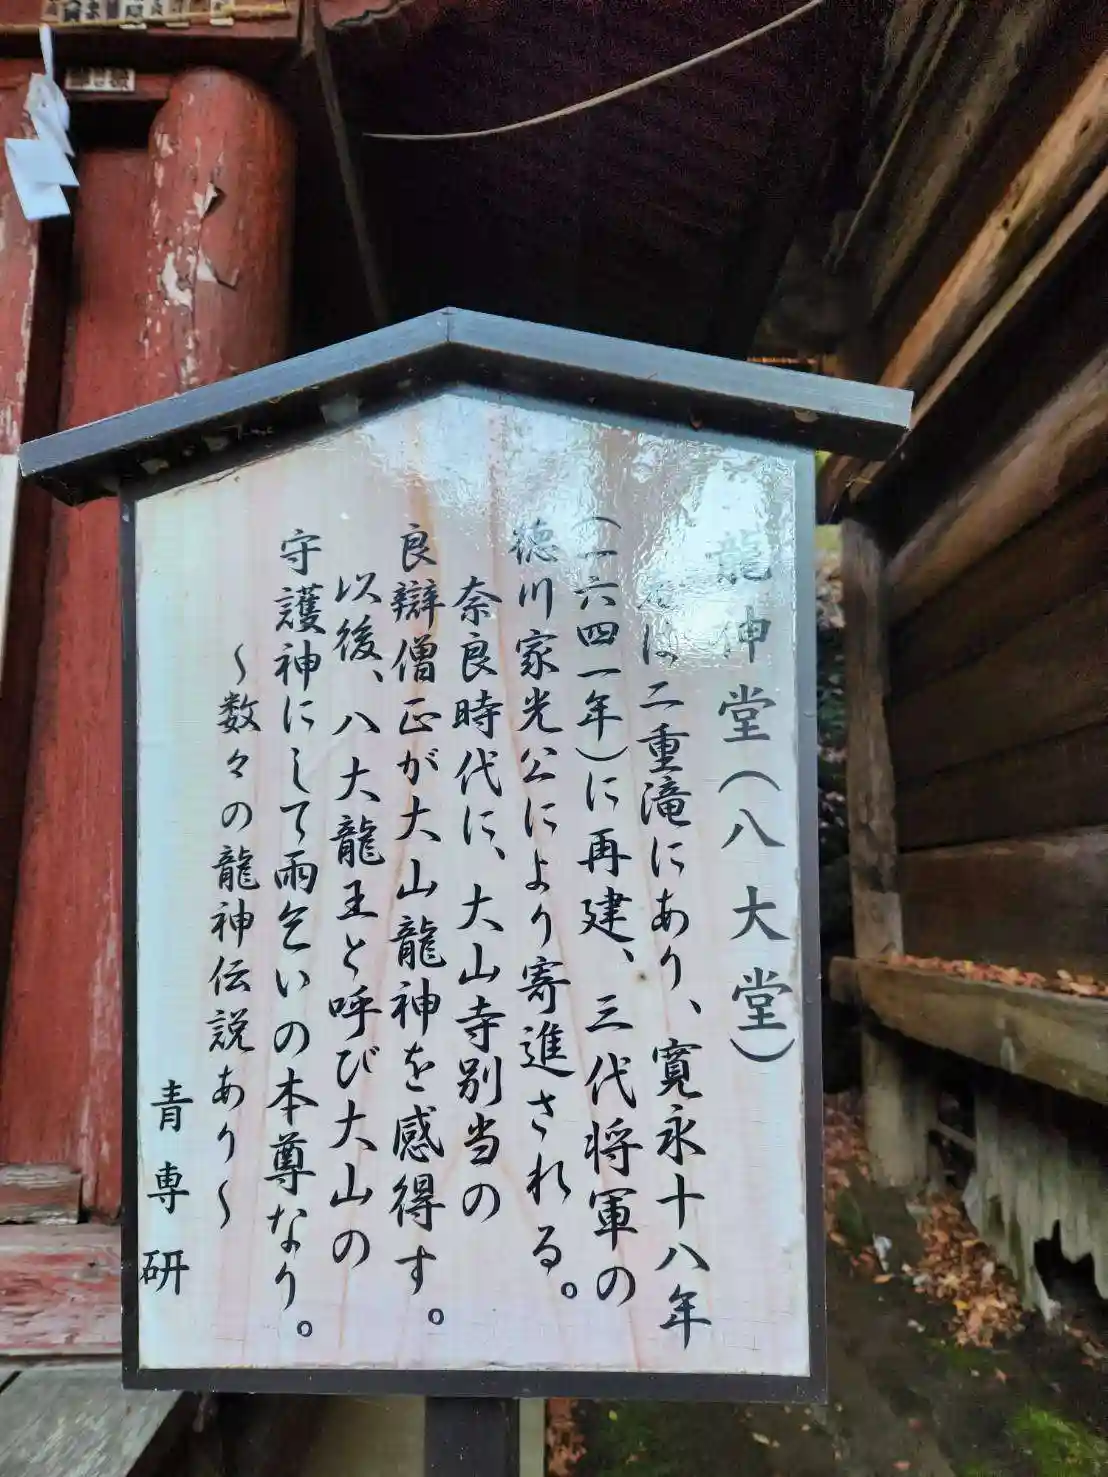 龍神堂（八大堂）
は二重滝にあり、寛永十八年
（一六四一年）に再建、三代将軍の
徳川家光公により寄進される。
奈良時代に、大山寺別当の
良辯僧正が大山龍神を感得す。
以後、八大龍王と呼び大山の
守護神にして雨乞いの本尊なり。
〜数々の龍神伝説あり〜
青専研